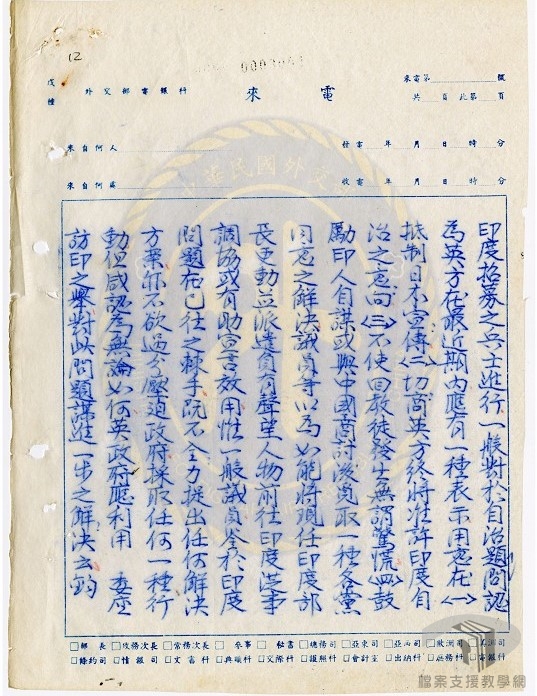 12
0003041
戊種
外交部電報科
來電
來電第　號
共　頁此第　頁
來自何人
來自何處
發電　年　月　日　時　分
收電　年　月　日　時　分
印度招募之兵士進行一般對於自治題問認
為英方在最近期內應有一種表示用意在〈一〉
抵制日本宣傳〈二〉切商英方終將准許印度自
治之意向〈三〉不使回教徒發生無謂驚慌〈四〉鼓
勵印人自謀或與中國商討後覓取一種各黨
同意之解決議員等以為如能將現任印度部
長更動並派遣負有聲望人物前往印度從事
調協或有助言效用惟一般議員令於印度
問題在已往之棘手既不全力提出任何解決
方案亦不欲過分壓迫政府採取任何一種行
動但咸認為無論如何英政府應利用　委座
訪印之舉對此問題謀進一步之解決云鈞
□部長□政務次長□常務次長□參事□秘書□總務司□亞東司□亞西司□歐洲司□美洲司
□條約司□情報司□文書科□典職科□交際科□護照科□會計室□出納科□庶務科□電報科
中華民國外交
檔案支援教學網